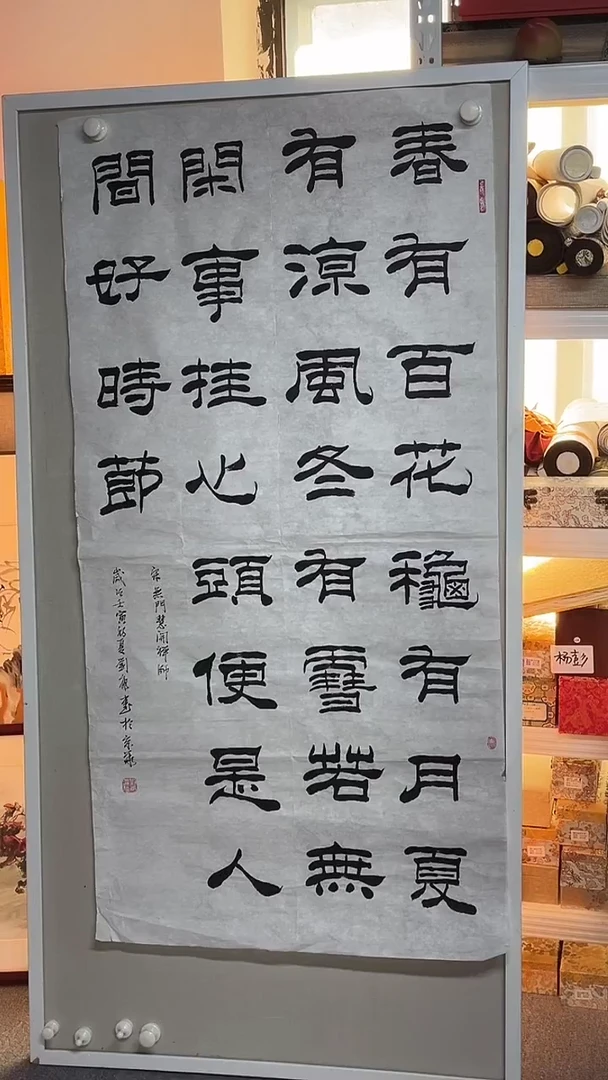 春有百花龝有月夏
有涼風冬有雪若無
閑事挂心頭便是人
間好時節
宋無門慧開禪師
歲次壬寅初夏劉
楊彭